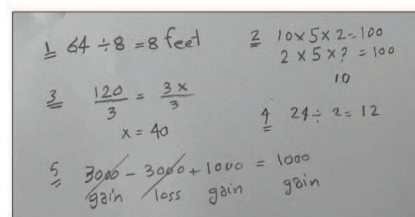 1 64 ÷ 8 = 8 feet
2 10 x 5 x 2 = 100
2 x 5 x ? = 100
10
3 120/3 = 3x/3
x = 40
4 24 ÷ 2 = 12
5 3000 - 3000 + 1000 = 1000
gain loss gain gain